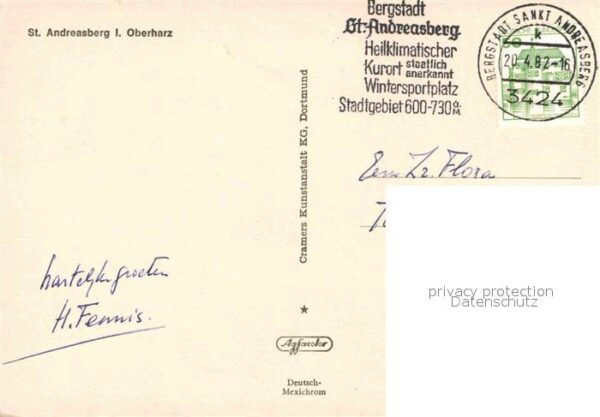 St. Andreasberg I. Oberharz
Bergstadt
St. Andreasberg
Heilklimatischer
Kurort staatlich anerkannt
Wintersportplatz
Stadtgebiet 600-730 ü. M.
BERGSTADT SANKT ANDREASBERG
k
20.-4.82-16
3424
50
Cramers Kunstanstalt KG, Dortmund
Eerw. Zr. Flora
hartelijke groeten
H. Fennis.
Agfacolor
Deutsch-
Mexichrom
privacy protection
Datenschutz